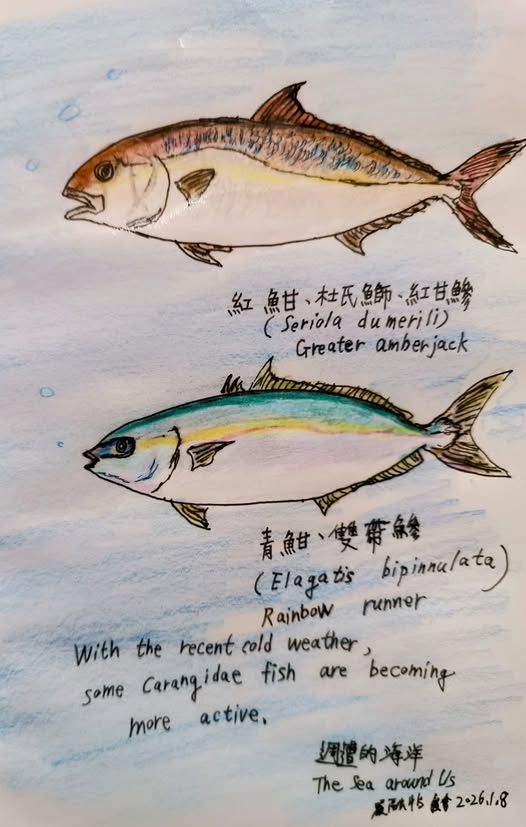 紅魽、杜氏鰤、紅甘鰺
(Seriola dumerili)
Greater amberjack
青魽、雙帶鰺
(Elagatis bipinnulata)
Rainbow runner
With the recent cold weather,
some Carangidae fish are becoming
more active.
週遭的海洋
The Sea around Us
2026.1.8